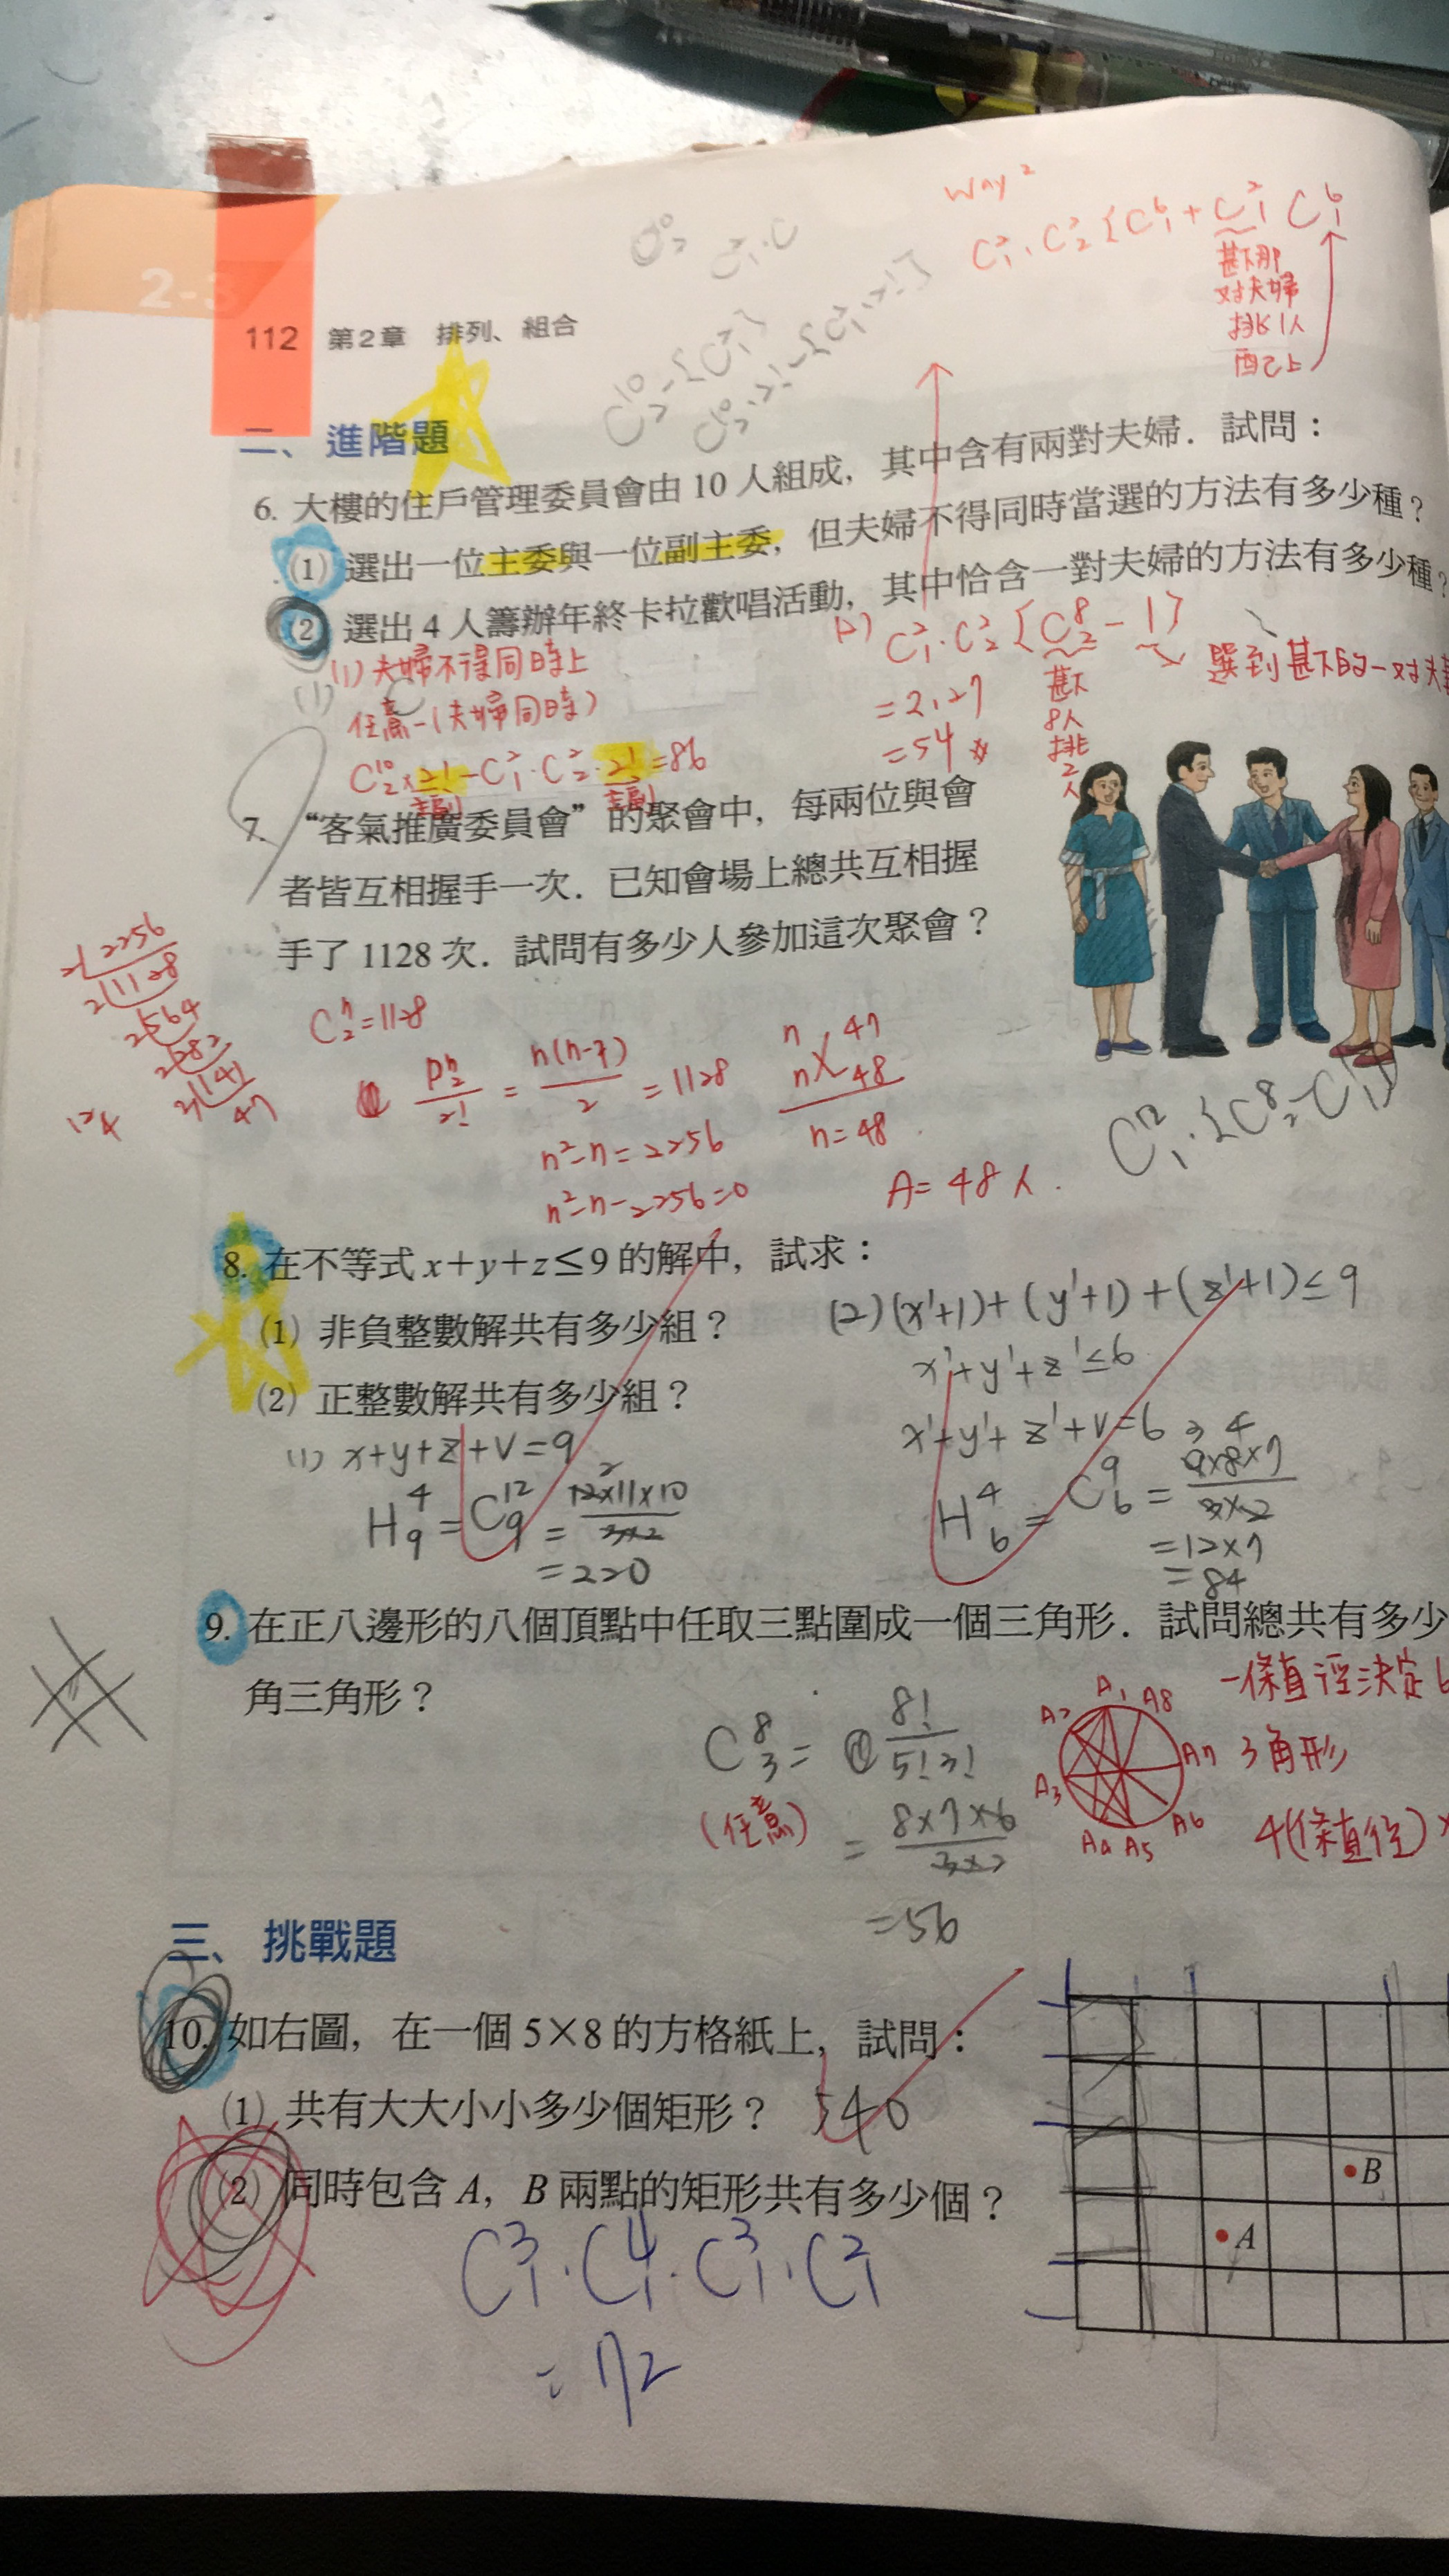 way 2
C²₁．C²₂{C⁶₂+C²₁C⁶₁
甚下那
对夫婦
挑1人
配上
2-3
112 第2章 排列、組合
二、進階題
6. 大樓的住戶管理委員會由10人組成，其中含有兩對夫婦．試問：
(1) 選出一位主委與一位副主委，但夫婦不得同時當選的方法有多少種？
(2) 選出4人籌辦年終卡拉歡唱活動，其中恰含一對夫婦的方法有多少種？
(1) 夫婦不得同時上
任意-(夫婦同時)
C¹⁰₂×2!-C²₁·C²₂·2!=86
主副 主副
(2) C²₁·C²₂{C⁸₂-1}
=2·27
=54
甚下
8人
挑
2
人
選到甚下的一对夫
7. “客氣推廣委員會”的聚會中，每兩位與會
者皆互相握手一次．已知會場上總共互相握
手了1128次．試問有多少人參加這次聚會？
2 2256
2 1128
2 564
2 282
2 141
47
Cⁿ₂=1128
Pⁿ₂/2! = n(n-1)/2 = 1128
n²-n=2256
n²-n-2256=0
n 47
n 48
n=48
A=48人.
8. 在不等式x+y+z≤9的解中，試求：
(1) 非負整數解共有多少組？
(2) 正整數解共有多少組？
(1) x+y+z+v=9
H⁴₉=C¹²₉=12×11×10/3×2
=220
(2)(x'+1)+(y'+1)+(z'+1)≤9
x'+y'+z'≤6
x'+y'+z'+v=6
H⁴₆=C⁹₆=9×8×7/3×2
=12×7
=84
9. 在正八邊形的八個頂點中任取三點圍成一個三角形．試問總共有多少
角三角形？
C⁸₃=8!/5!3!
(任意)
=8×7×6/3×2
=56
A1 A8 A7 A6 A5 A4 A3 A2
一條直徑決定6
3角形
4(條直徑)×
三、挑戰題
10. 如右圖，在一個5×8的方格紙上，試問：
(1) 共有大大小小多少個矩形？ 540
(2) 同時包含A，B兩點的矩形共有多少個？
C³₁·C⁴₁·C³₁·C²₁
=72
B
A